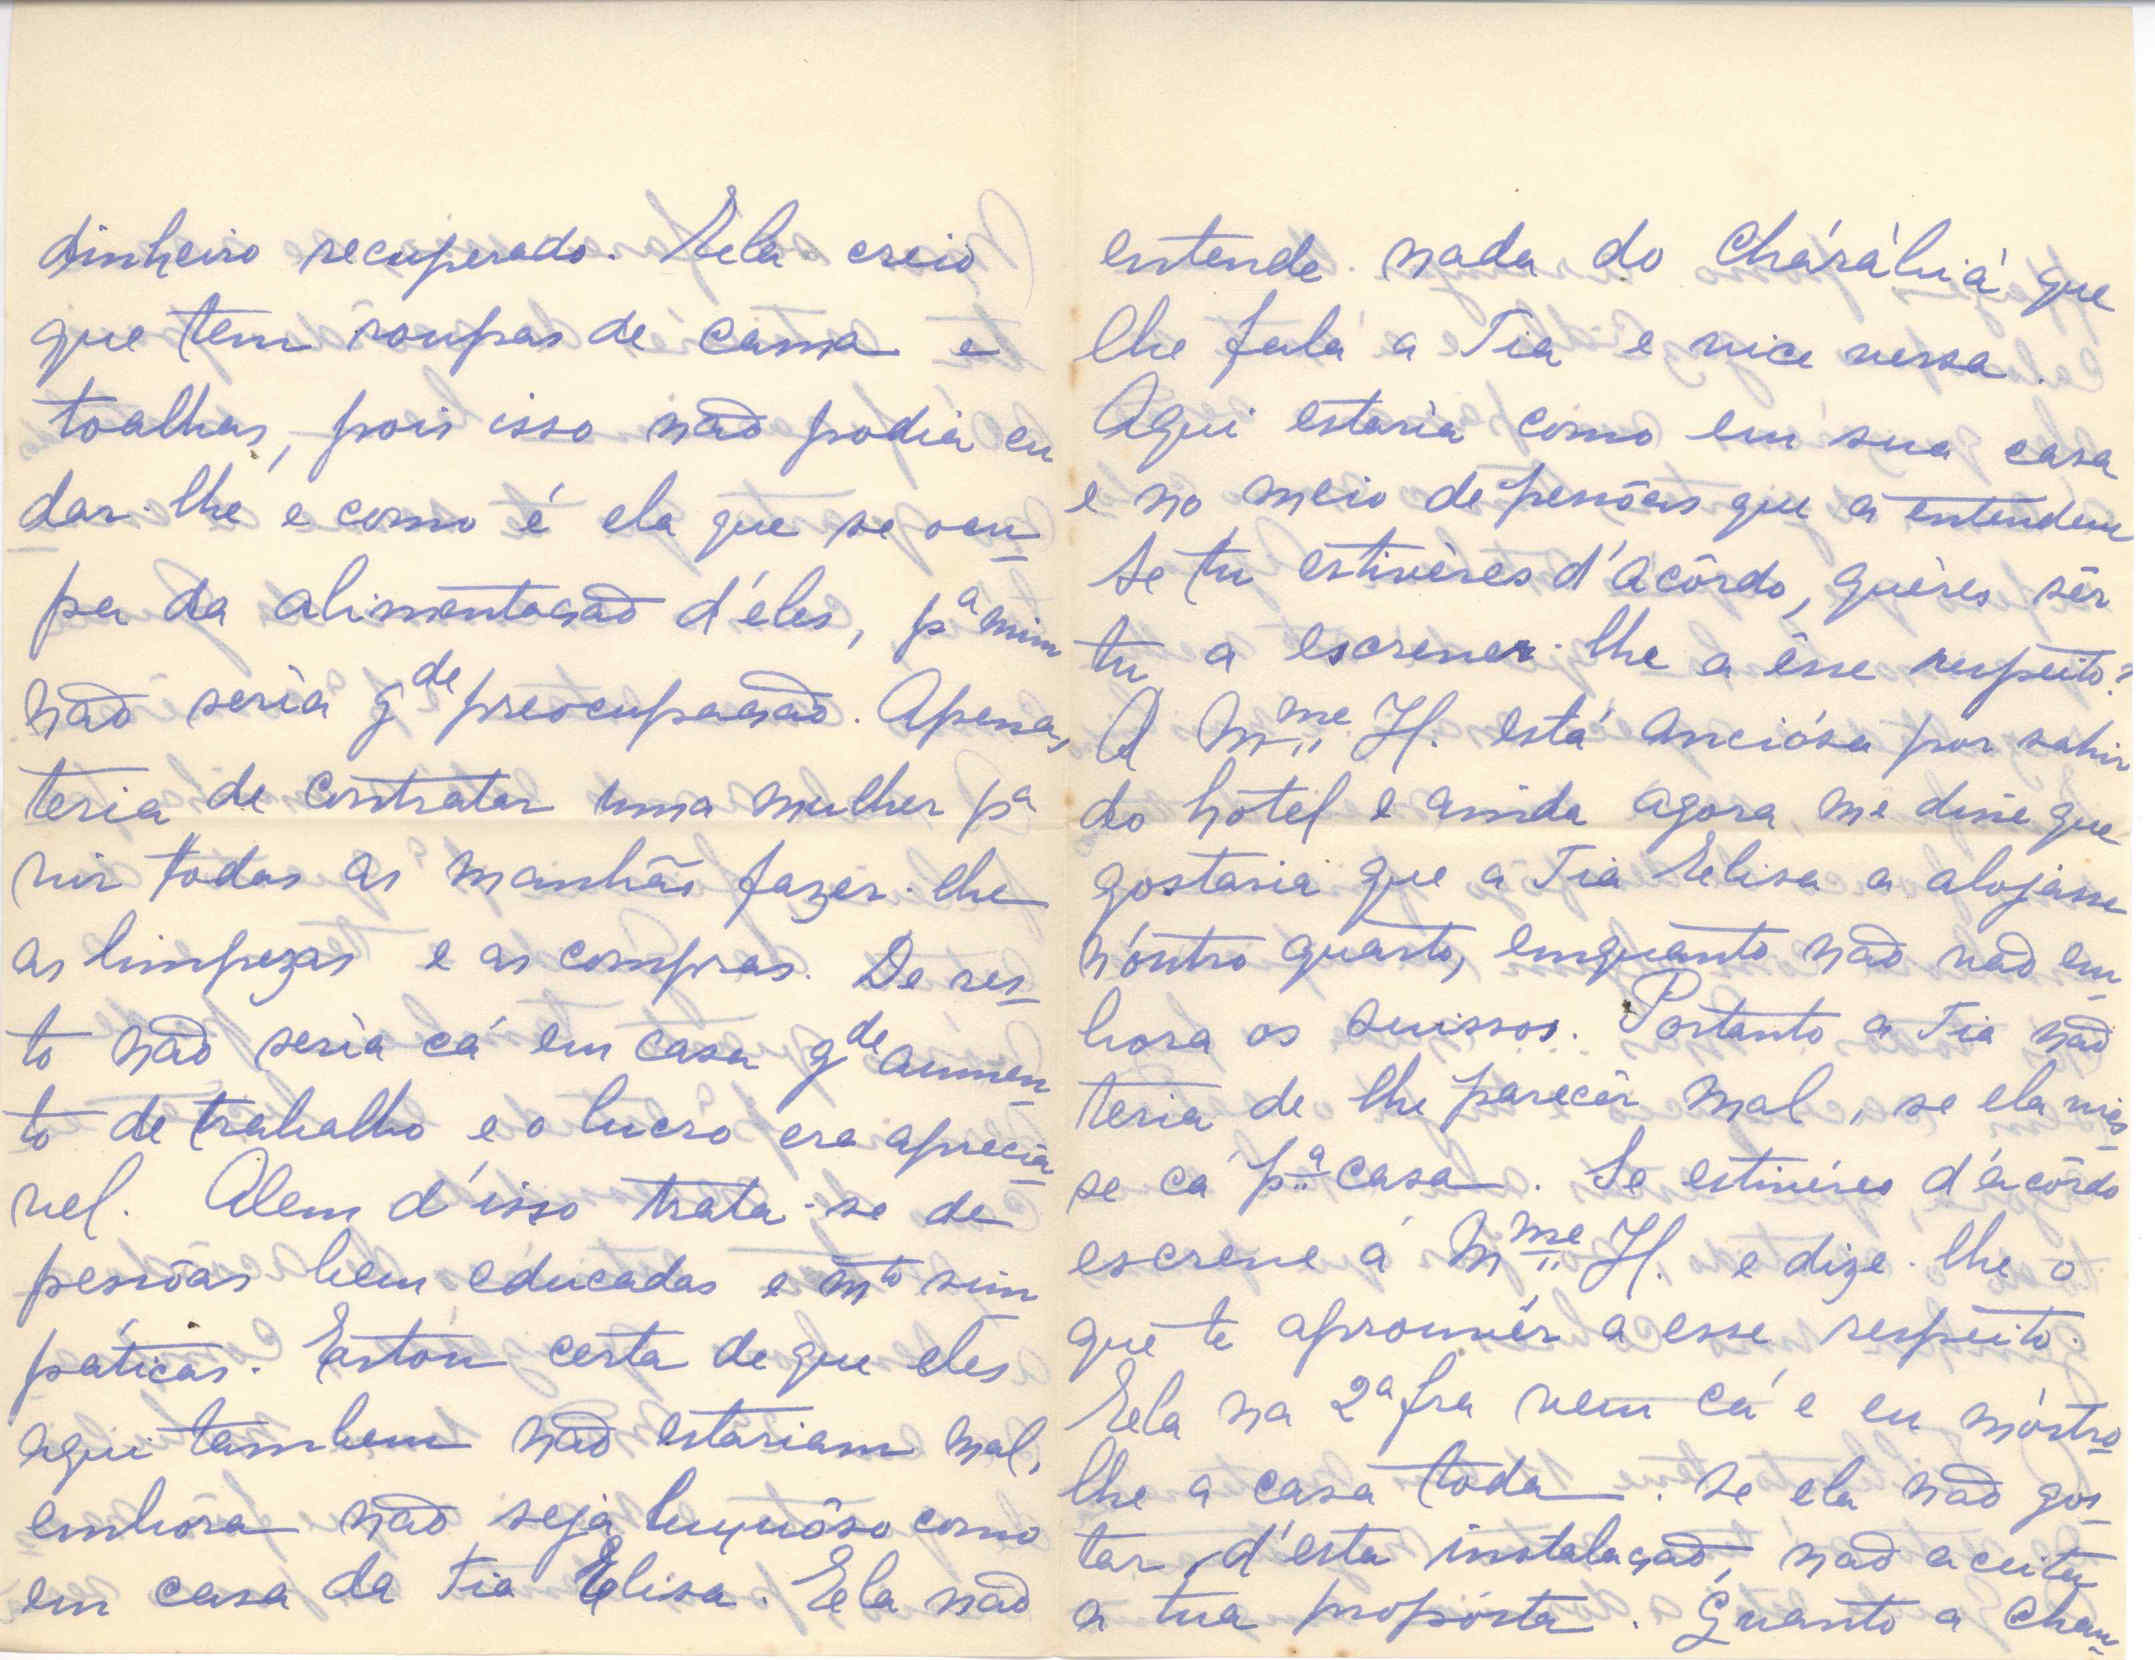 dinheiro recuperado. Ela creio
que tem roupas de cama e
toalhas, pois isso não podia eu
dar-lhe e como é ela que se ocu-
pa da alimentação d'éles, pª mim
não seria gde preocupação. Apenas
teria de contratar uma mulher pª
vir todas as manhãs fazer-lhe
as limpezas e as compras. De res-
to não seria cá em casa gde aumen-
to de trabalho e o lucro era apreciá-
vel. Alem d'isso trata-se de
pessôas bem educadas e mto sim-
páticas. Estou certa de que eles
aqui tambem não estariam mal,
embóra não seja luxuôso como
em casa da Tia Elisa. Ela não
entende nada do chárábiá que
lhe fala a Tia e vice versa.
Aqui estaria como em sua casa
e no meio de pessôas que a entendem
Se tu estivéres d'acôrdo, quéres sêr
tu a escrever-lhe a êsse respeito?
A Mme H. está anciósa por sahir
do hotel e ainda agora me disse que
gostaria que a Tia Elisa a alojasse
n'outro quarto, emquanto não vão em-
bora os suissos. Portanto a Tia não
teria de lhe parecêr mal, se ela vies-
se cá pª casa. Se estivéres d'acôrdo
escreve á Mme H. e dize-lhe o
que te aprouvér a esse respeito.
Ela na 2ª fra vem cá e eu móstro-
lhe a casa toda. Se ela não gos-
tar d'esta instalação, não aceita
a tua propósta. Quanto a cham-